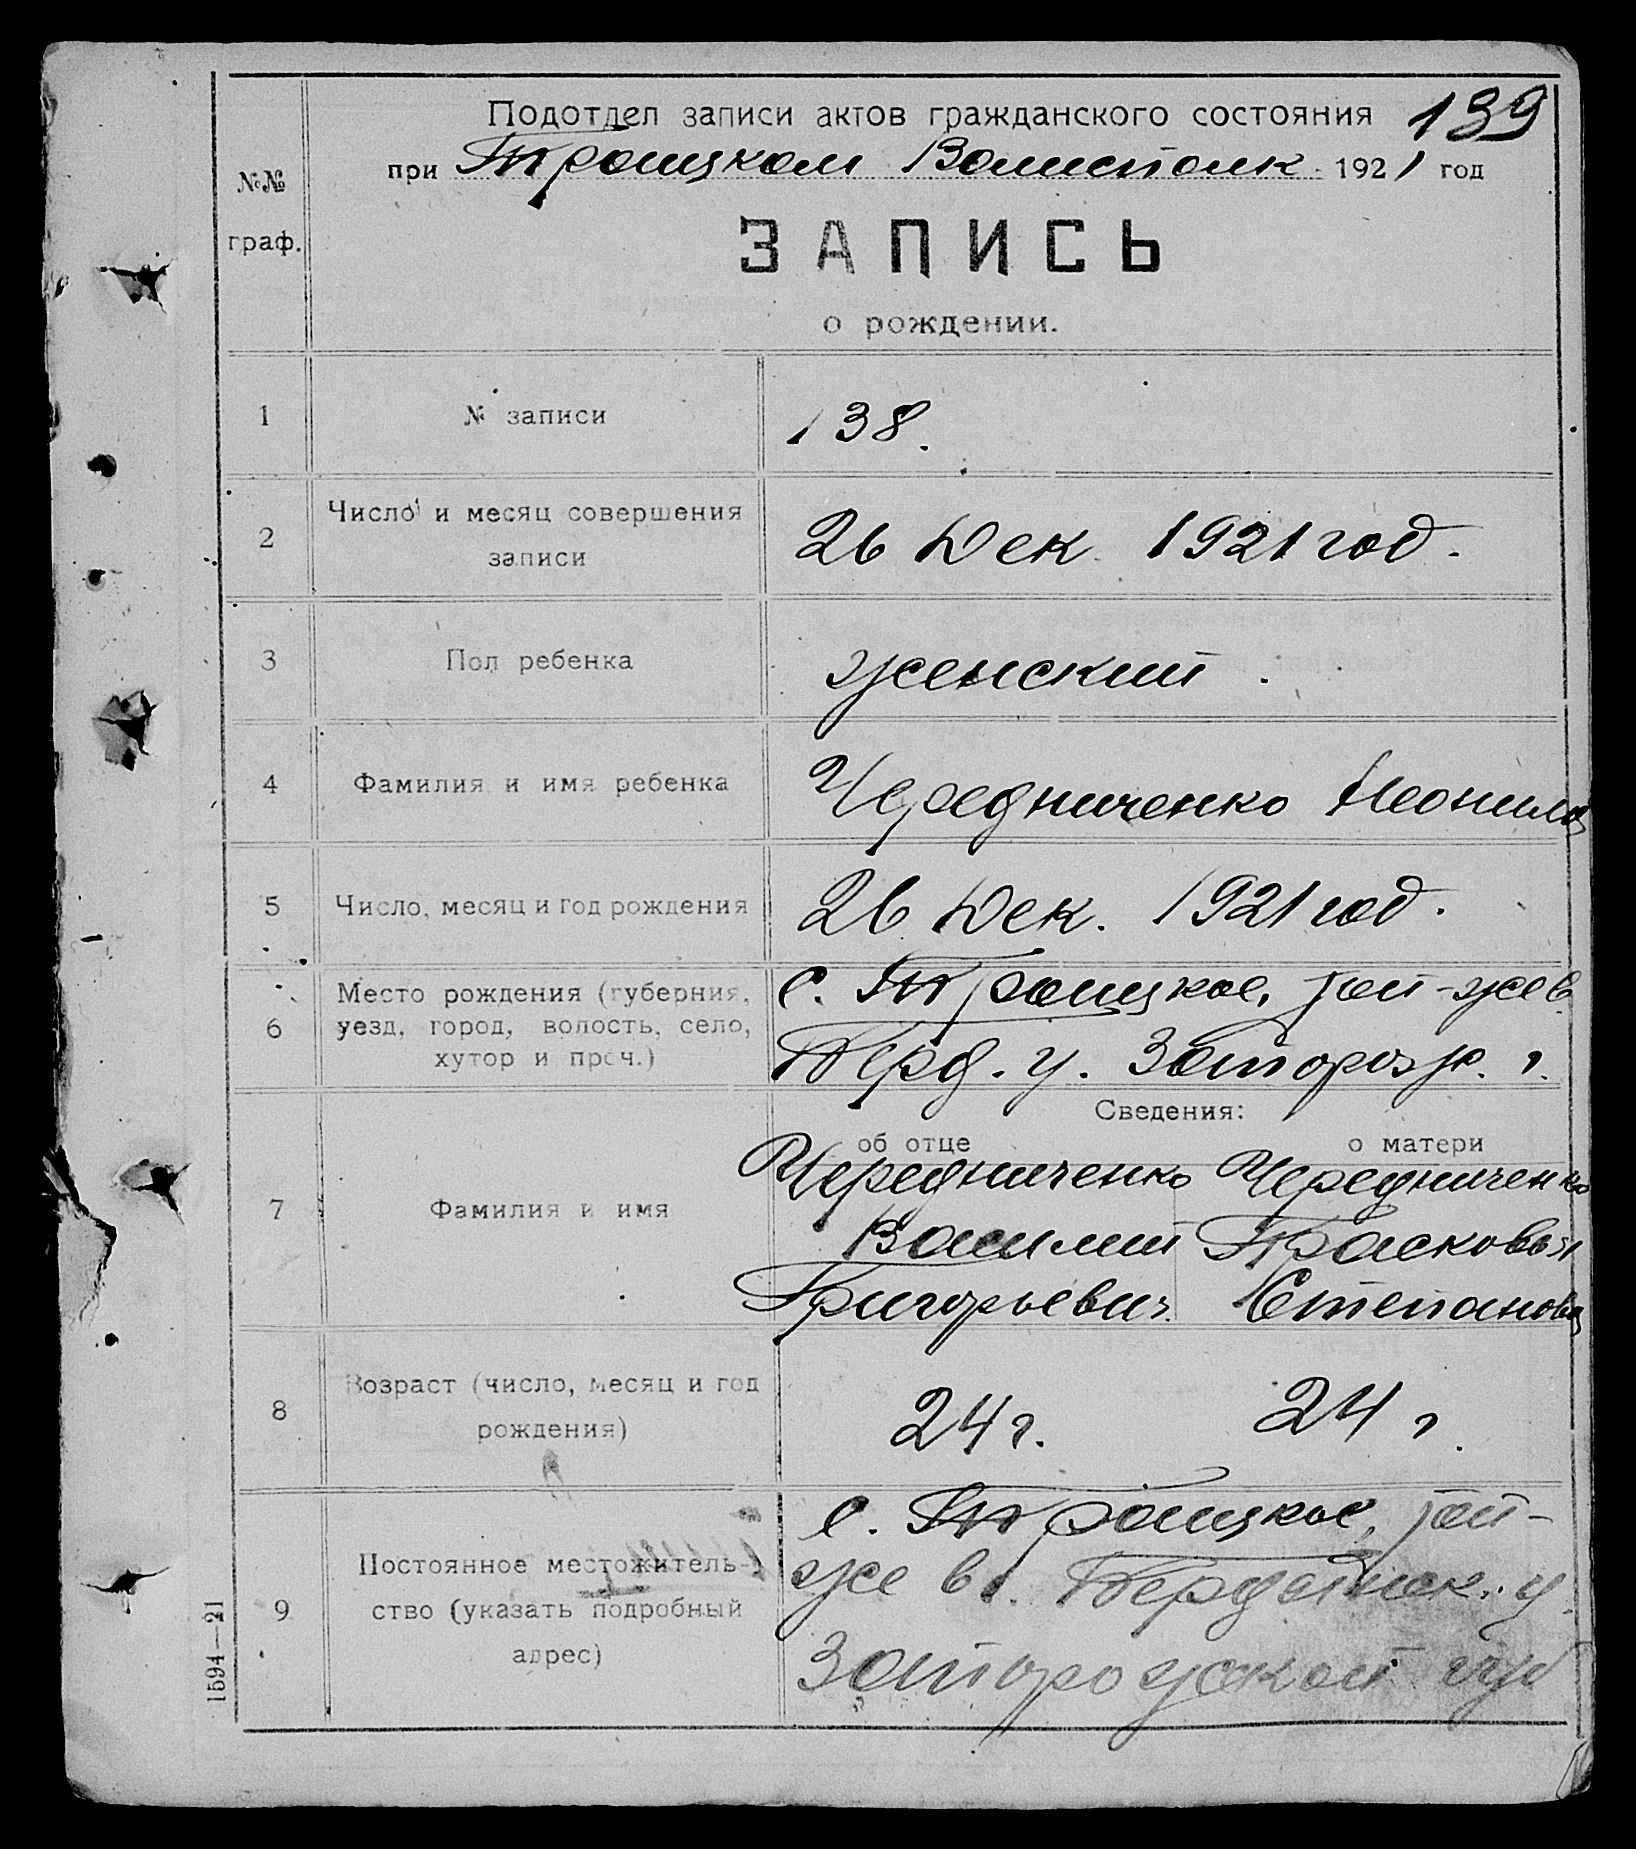 Подотдел записи актов гражданского состояния 139
при Троицком Волисполк 1921 год
№№ граф.
ЗАПИСЬ
о рождении.
1 № записи 138.
2 Число и месяц совершения записи 26 Дек. 1921 год.
3 Пол ребенка женский.
4 Фамилия и имя ребенка Чередниченко Неонила
5 Число, месяц и год рождения 26 Дек. 1921 год.
6 Место рождения (губерния, с. Троицкое, той-же в.
уезд, город, волость, село, Берд. у. Запорож. г.
хутор и проч.)
Сведения:
об отце о матери
7 Фамилия и имя
Чередниченко Чередниченко
Василий Прасковья
Григорьевич. Степанова
8 Возраст (число, месяц и год рождения) 24 г. 24 г.
9 Постоянное местожитель-
ство (указать подробный
адрес)
с. Троицкое, той-
же в. Бердянск. у.
Запорожской губ
1594—21